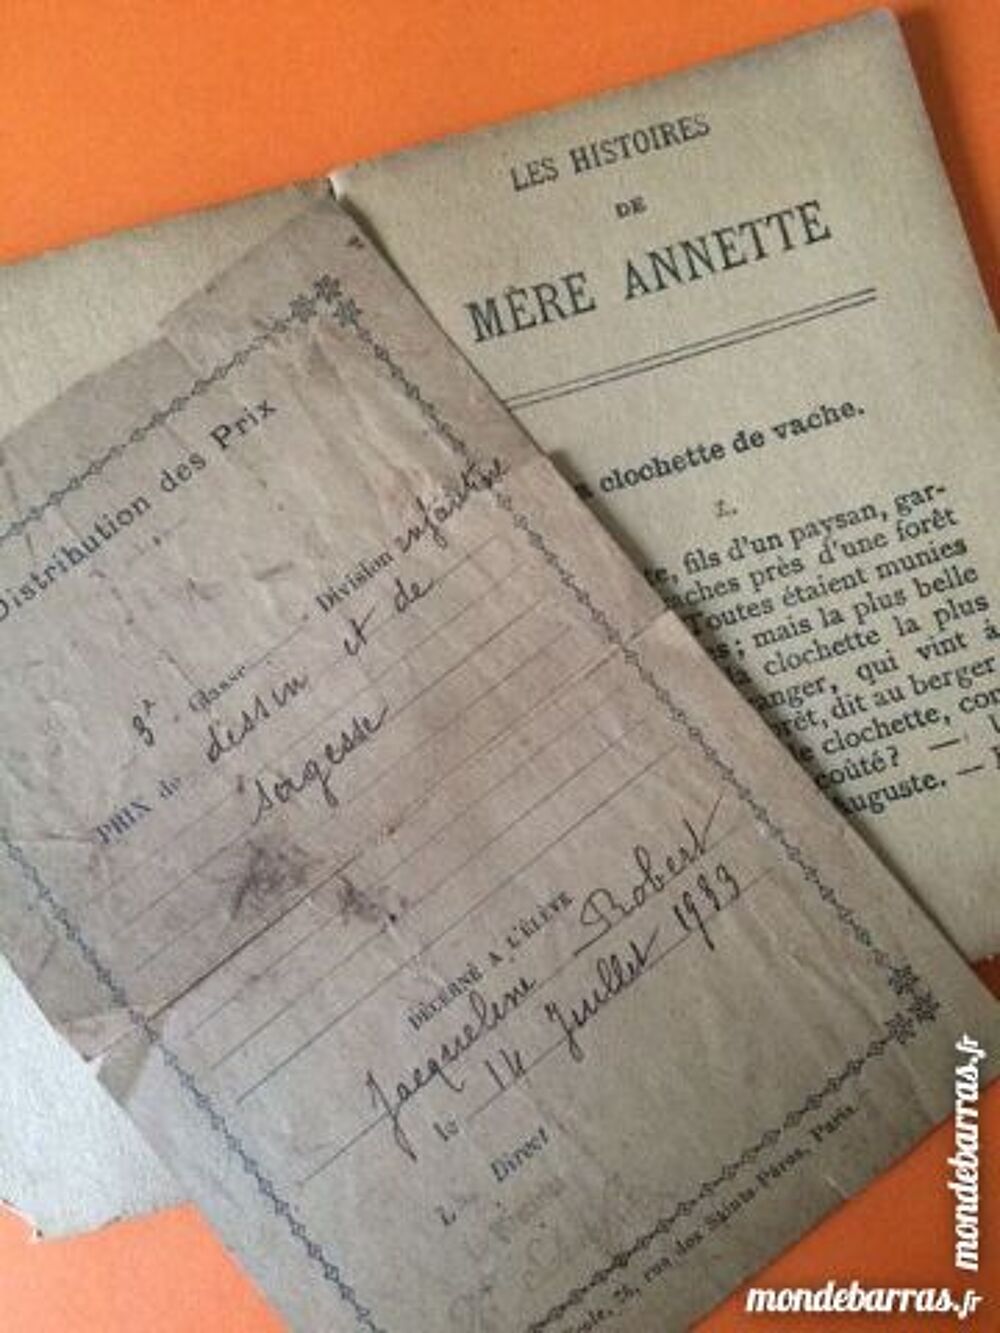 LES HISTOIRES
DE
MÈRE ANNETTE
clochette de vache.
I.
fils d'un paysan, gar-
ches près d'une forêt
Toutes étaient munies
; mais la plus belle
clochette la plus
anger, qui vint à
rêt, dit au berger
clochette, com
coûté? —
uguste. —
Distribution des Prix
3e Classe Division enfantine
PRIX de dessin et de
sagesse
DÉCERNÉ A L'ÉLÈVE
Jacqueline Robert
le 14 Juillet 1933
Direct
rue des Saints-Pères, Paris.
mondebarras.fr
mondebarras.fr